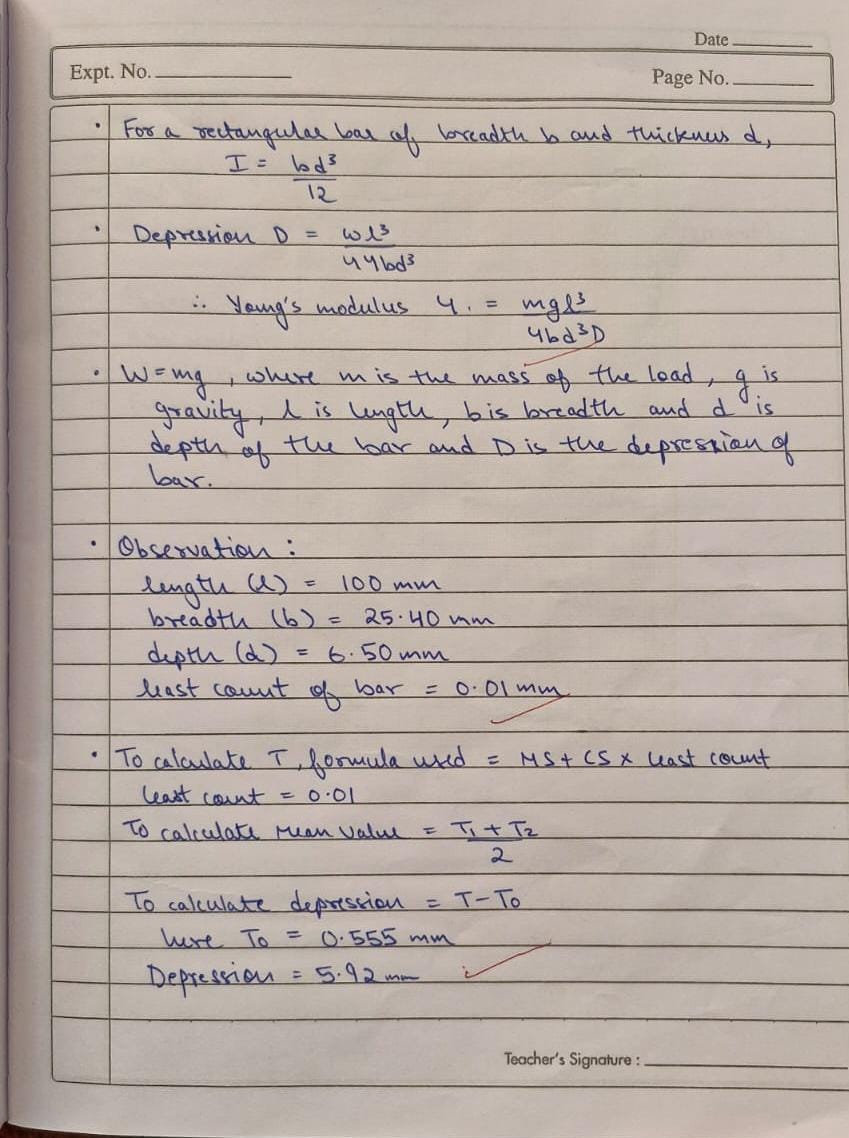 Date
Expt. No.
Page No.
• For a rectangular bar of breadth b and thickness d,
I = bd³
12
• Depression D = wl³
4Ybd³
∴ Young's modulus Y. = mgl³
4bd³D
• W = mg, where m is the mass of the load, g is
gravity, l is length, b is breadth and d is
depth of the bar and D is the depression of
bar.
• Observation :
length (l) = 100 mm
breadth (b) = 25.40 mm
depth (d) = 6.50 mm
least count of bar = 0.01 mm
• To calculate T, formula used = MS + CS x least count
least count = 0.01
To calculate Mean Value = T₁ + T₂
2
To calculate depression = T - To
here To = 0.555 mm
Depression = 5.92 mm
Teacher's Signature :